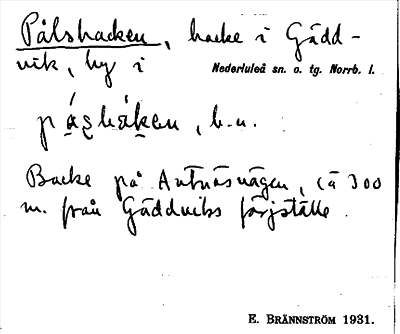 Pålsbacken, backe i Gädd-
vik, by i Nederluleå sn. o. tg. Norrb. l.
påsbakən, b.u.
Backe på Antnäsvägen, ca 300
m. från Gäddviks färjställe.
E. BRÄNNSTRÖM 1931.